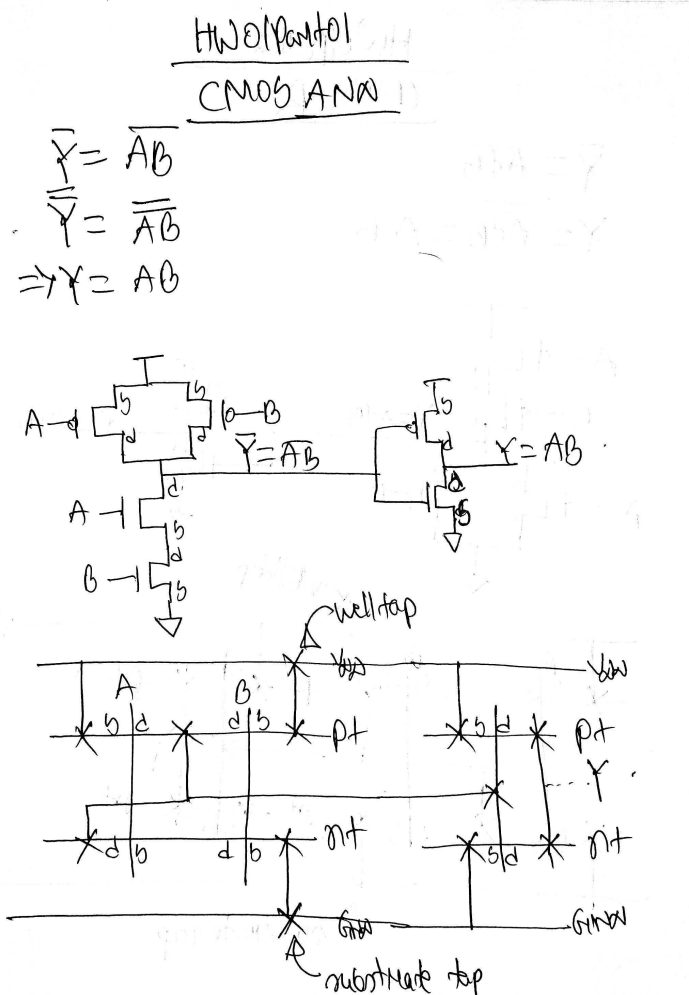 HW01Part01
CMOS AND
Y̅ = A̅B̅
Y̿ = A̿B̿
=> Y = AB
s s s
A d d B d
Y̅ = A̅B̅ Y = AB
d d
A s s
d
B s
well tap
VDD VDD
A B
s d d s p+ s d p+
Y
d s d s n+ s d n+
GND GND
substrate tap